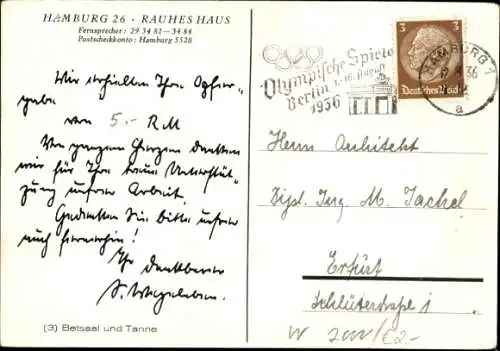 HAMBURG 26 · RAUHES HAUS
Fernsprecher: 29 34 81—34 84
Postscheckkonto: Hamburg 5528
Wir erhielten Ihre Opfer-
gabe
von 5.- RM
Von ganzem Herzen danken
wir für Ihre treue Unterstüt-
zung unserer Arbeit.
Gedenken Sie bitte unserer
auch fernerhin!
Ihr dankbarer
(3) Betsaal und Tanne
Olympische Spiele
Berlin 1.-16. August
1936
3 3
Deutsches Reich
HAMBURG 1
36
a
Herrn Architekt
Dipl. Ing. M. Jackel
Erfurt
Schlüterstraße 1